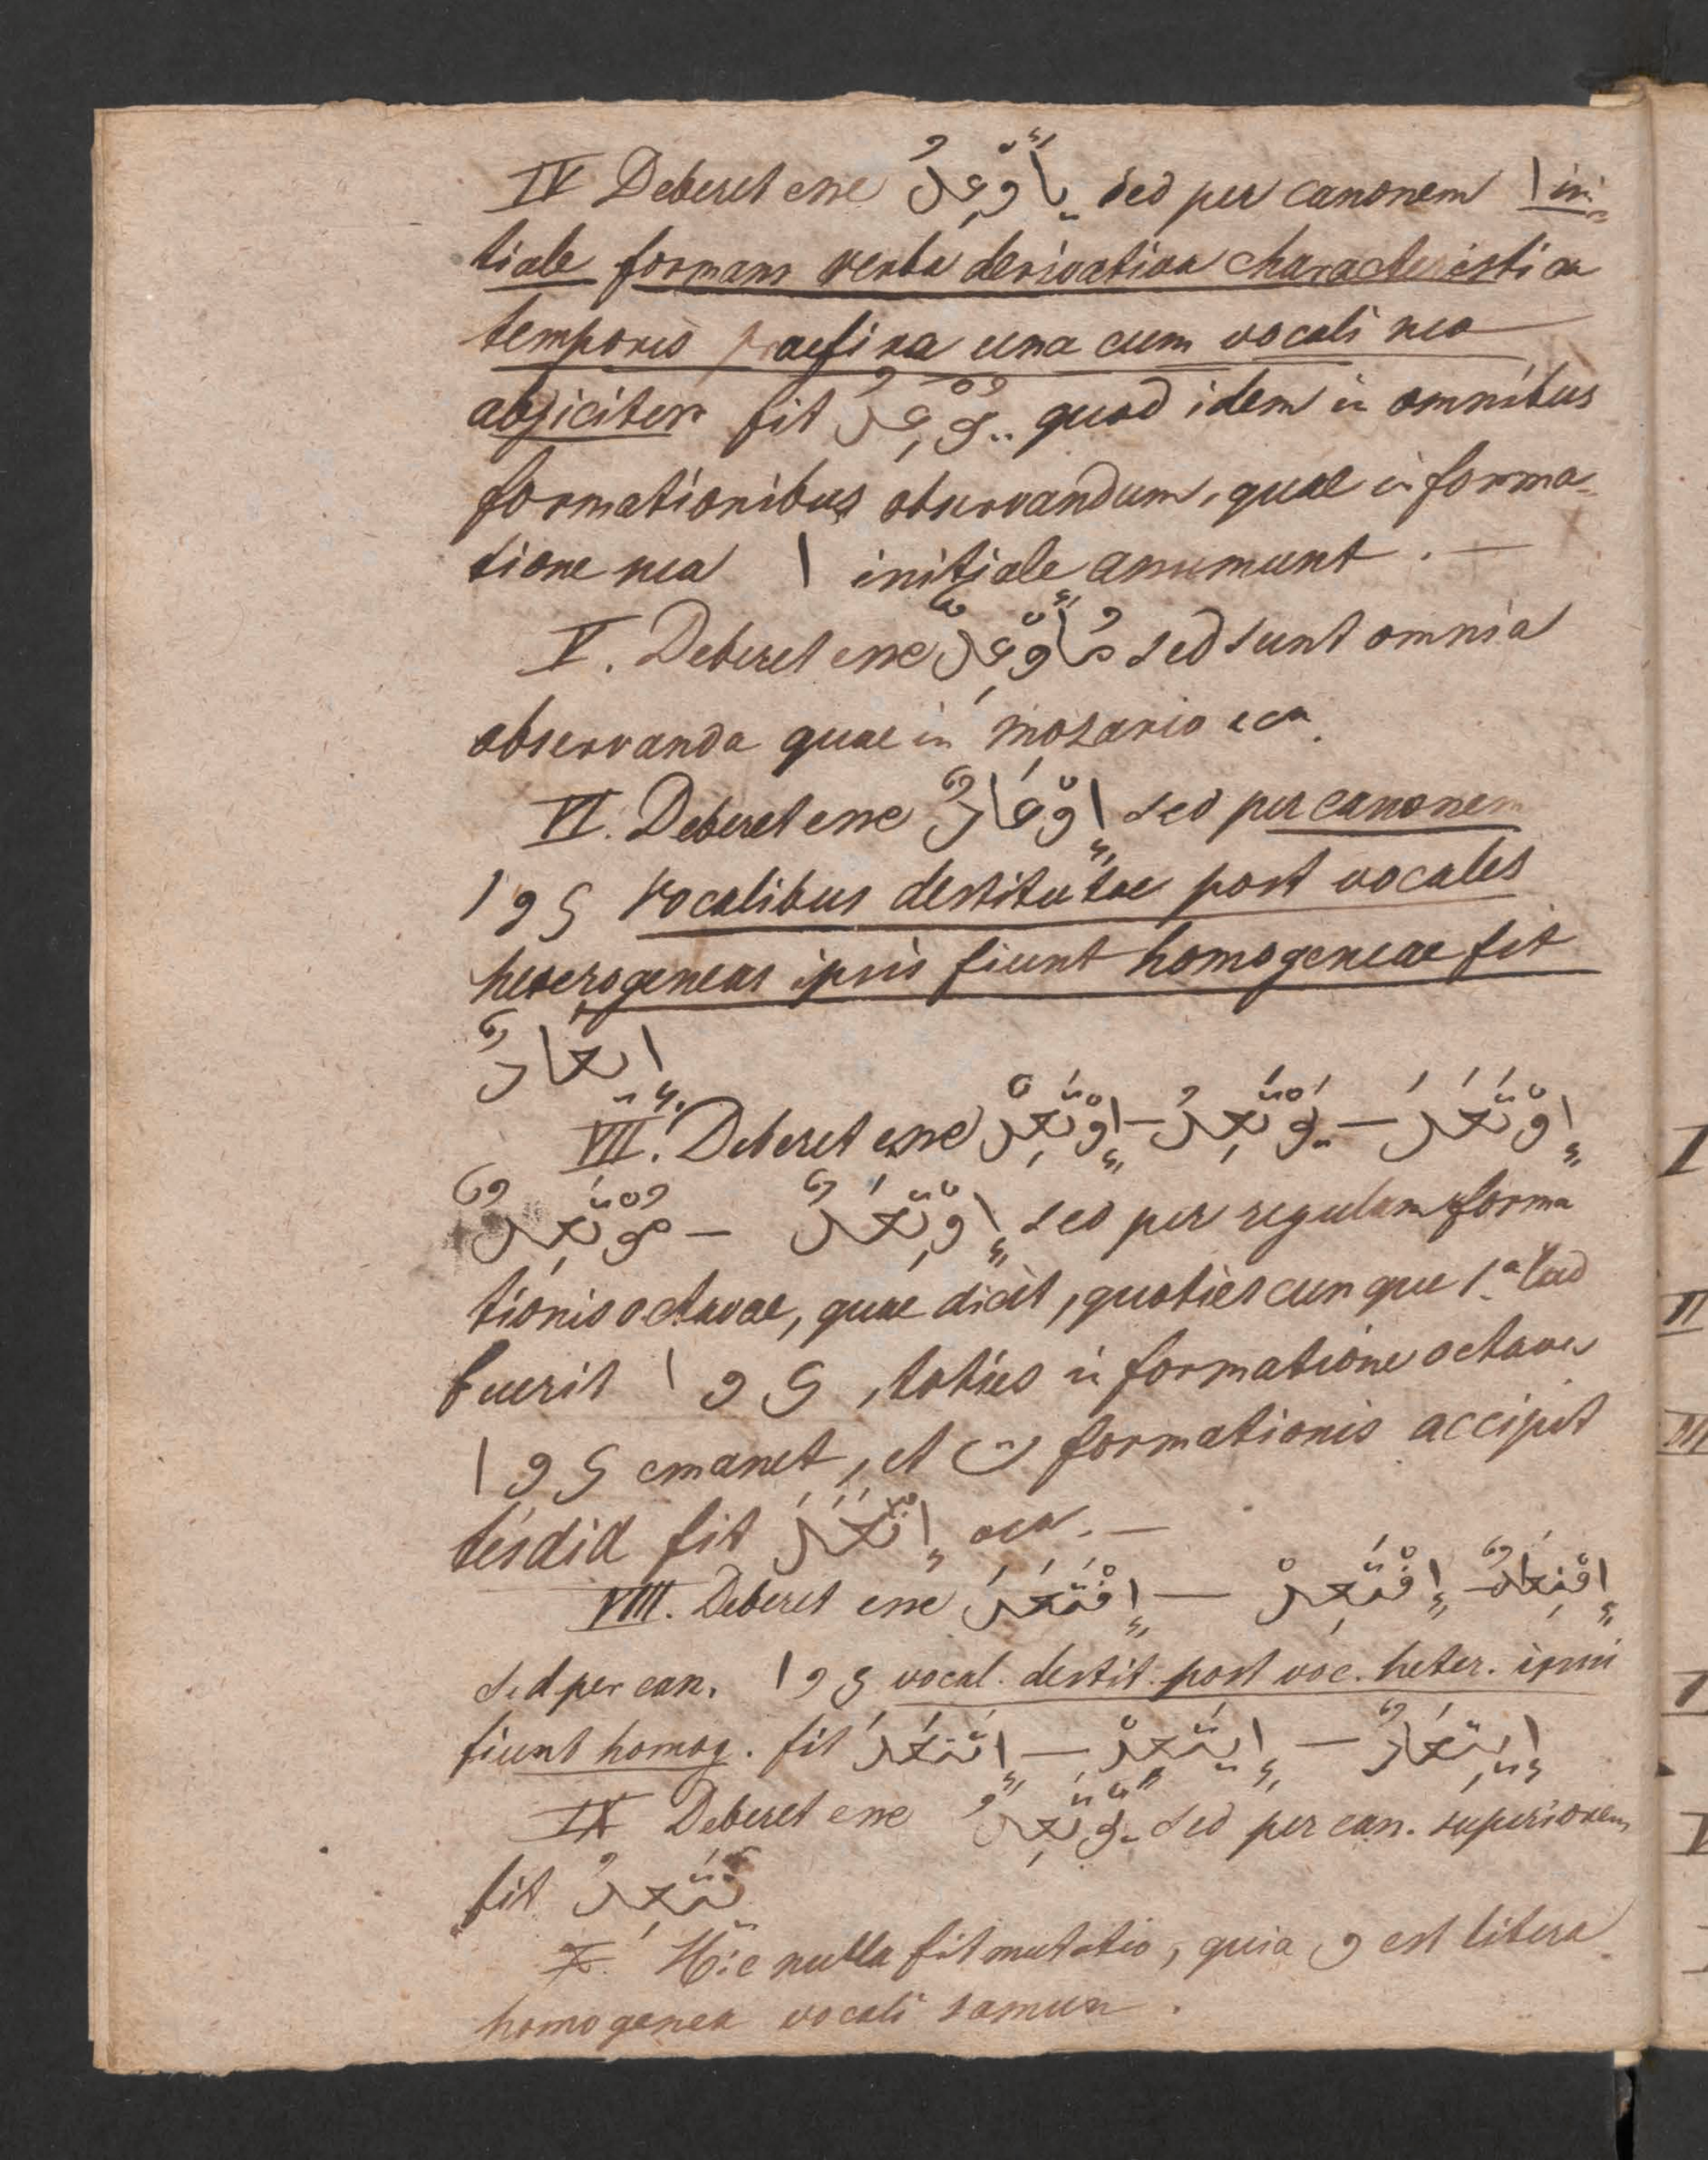 IV Deberet esse يأَوْعِدُ sed per canonem ا ini-
tiale formans verba derivativa characteristica
temporis praefixa una cum vocali sua
abjicitur fit يُوْعِدُ quod idem in omnibus
formationibus observandum, quae in forma-
tione sua ا initiale assumunt. —
V. Deberet esse مُأَوْعِدٌ sed sunt omnia
observanda quae in mozario eca.
VI. Deberet esse إِوْعَادٌ sed per canonem
ا و ي vocalibus destitutae post vocales
heterogeneas ipsis fiunt homogeneae fit
ايعَادٌ
VII. Deberet esse إِوْتَعَدَ — يَوْتَعِدُ — إِوْتَعِدْ
إِوْتِعَدٌ — مُوْتَعِدٌ sed per regulam forma
tionis octavae, quae dicit, quotiescunque 1ª rad
fuerit ا و ي, toties in formatione octava
ا و ي emanet, et ت formationis accipit
tesdid fit إِتَّعَدَ eca. —
VIII. Deberet esse إِوْتَعَدَ — إِوْتَعِدْ — إِوْتِعَادٌ
sed per can. ا و ي vocal. destit. post voc. heter. ipsis
fiunt homog. fit إِيتَعَدَ — إِيتَعِدْ — إِيتِعَادٌ
IX Deberet esse يَوْتَعِدُ sed per can. superiorem
fit يَتَعِدُ
X. Hic nulla fit mutatio, quia و est litera
homogenea vocali damma.